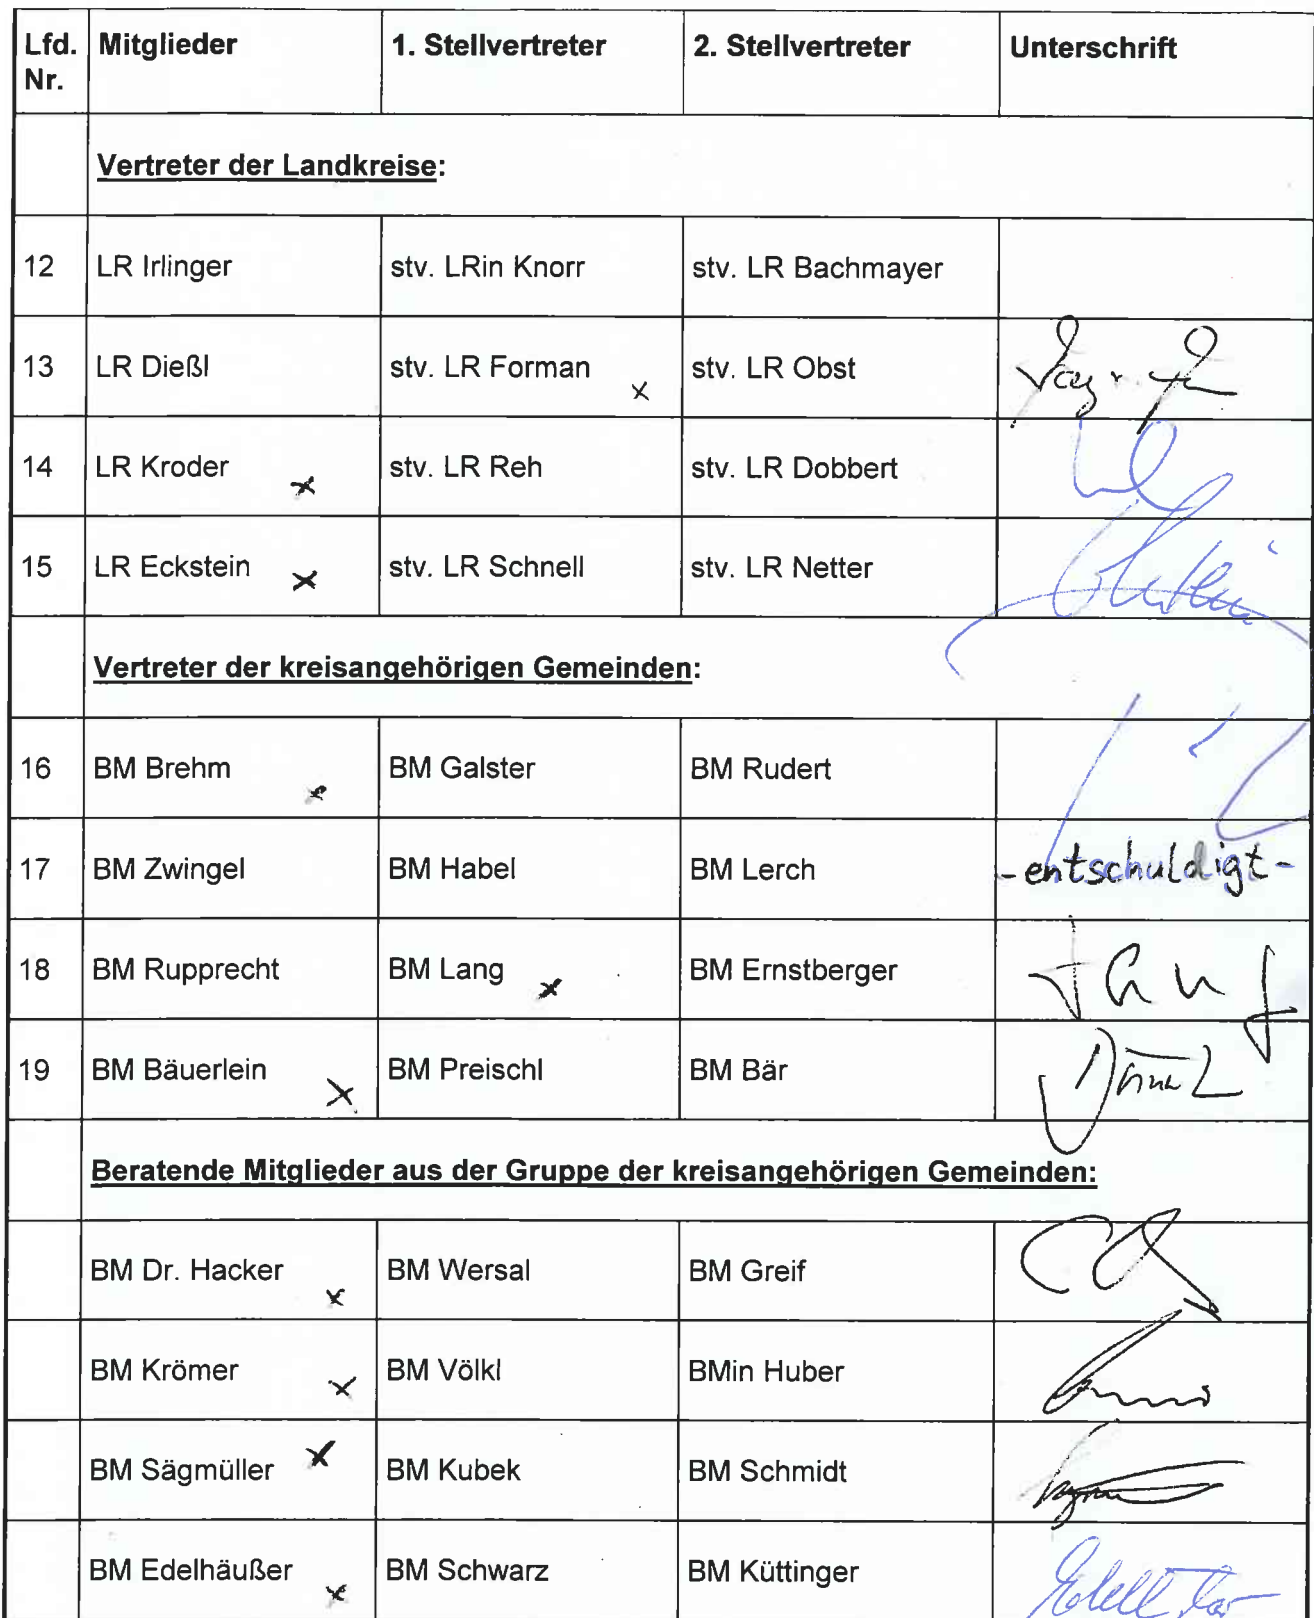 Lfd. Mitglieder 1. Stellvertreter 2. Stellvertreter Unterschrift
Nr.
Vertreter der Landkreise:
12 LR Irlinger stv. LRin Knorr stv. LR Bachmayer
13 LR Dießl stv. LR Forman x stv. LR Obst
14 LR Kroder x stv. LR Reh stv. LR Dobbert
15 LR Eckstein x stv. LR Schnell stv. LR Netter
Vertreter der kreisangehörigen Gemeinden:
16 BM Brehm x BM Galster BM Rudert
17 BM Zwingel BM Habel BM Lerch -entschuldigt-
18 BM Rupprecht BM Lang x BM Ernstberger
19 BM Bäuerlein x BM Preischl BM Bär
Beratende Mitglieder aus der Gruppe der kreisangehörigen Gemeinden:
BM Dr. Hacker x BM Wersal BM Greif
BM Krömer x BM Völkl BMin Huber
BM Sägmüller x BM Kubek BM Schmidt
BM Edelhäußer x BM Schwarz BM Küttinger